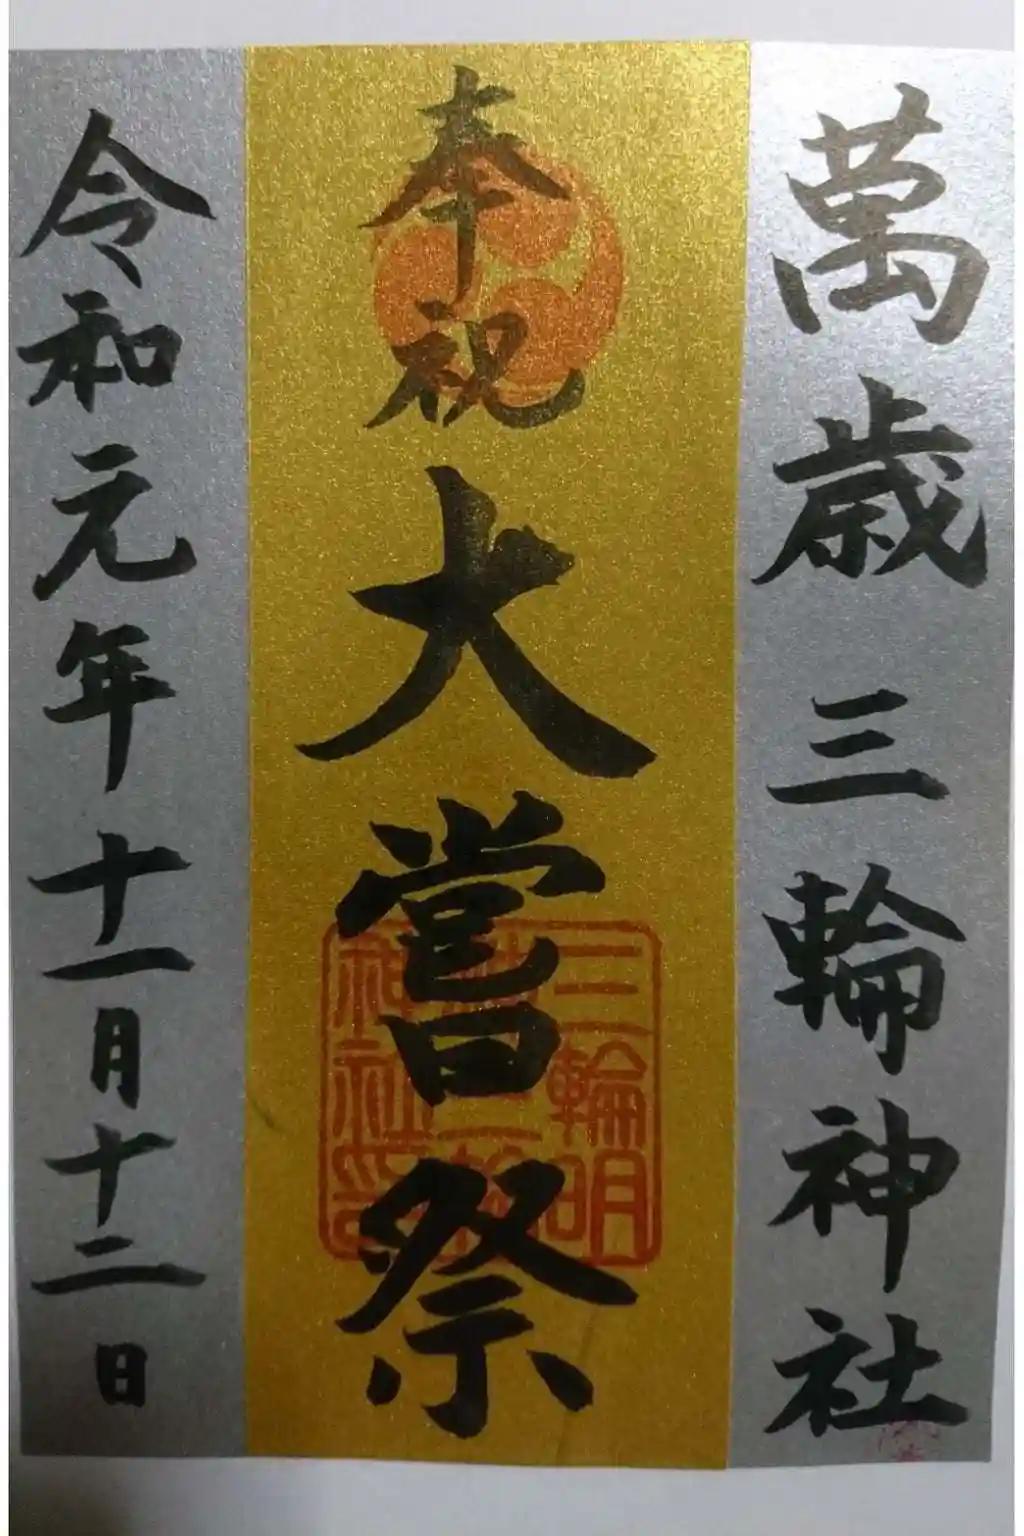 萬歳 三輪神社
奉祝
大嘗祭
令和元年十一月十二日
三輪明
神社